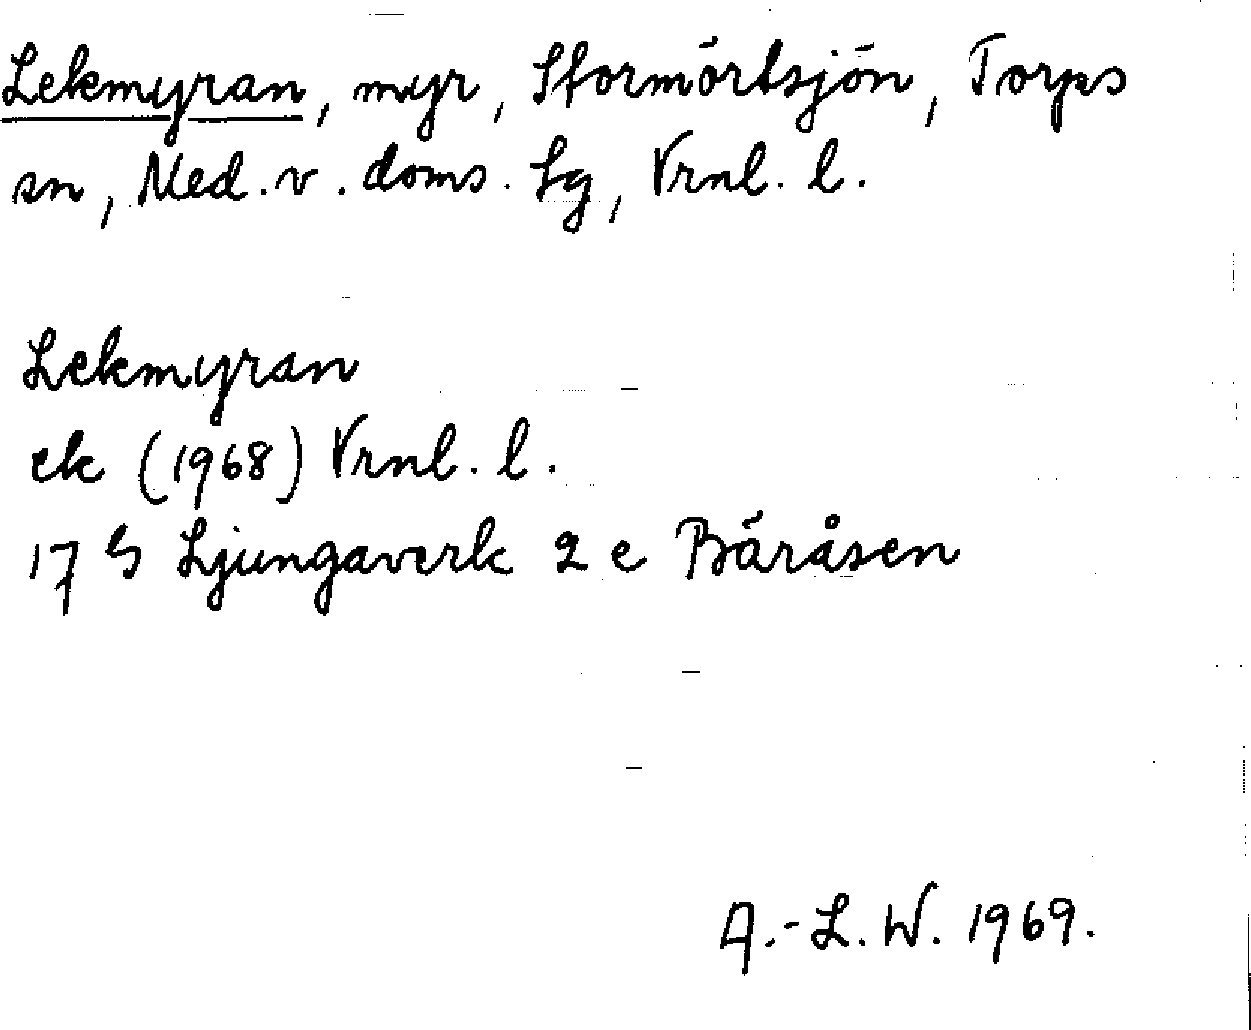 Lekmyran, myr, Stormörtsjön, Torps
sn, Med. v. doms. tg, Vrnl. l.
Lekmyran
ek (1968) Vrnl. l.
17 G Ljungaverk 2 e Bäråsen
A.-L. W. 1969.